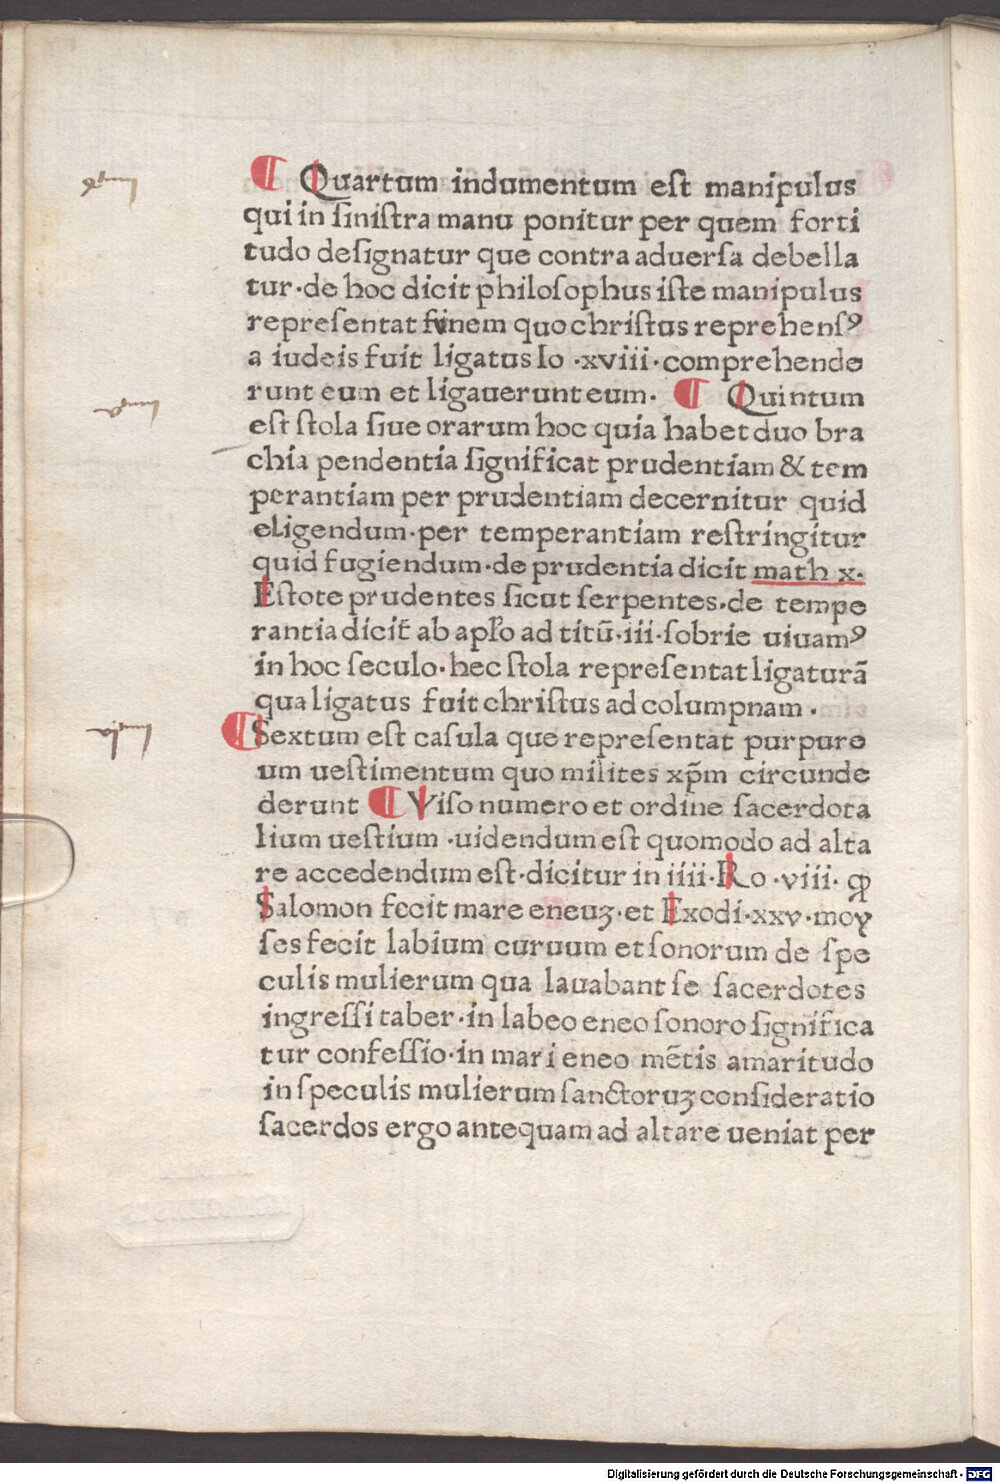 ¶ Quartum indumentum eſt manipulus
qui in ſiniſtra manu ponitur per quem forti
tudo deſignatur que contra aduerſa debella
tur·de hoc dicit philoſophus iſte manipulus
repreſentat funem quo chriſtus reprehenſꝰ
a iudeis fuit ligatus Io ·xviii·comprehende
runt eum et ligauerunt eum· ¶ Quintum
eſt ſtola ſiue orarum hoc quia habet duo bra
chia pendentia ſignificat prudentiam & tem
perantiam per prudentiam decernitur quid
eligendum·per temperantiam reſtringitur
quid fugiendum·de prudentia dicit math x·
Eſtote prudentes ſicut ſerpentes.de tempe
rantia dicit̄ ab apl̓o ad titū·iii·ſobrie uiuamꝰ
in hoc ſeculo·hec ſtola repreſentat ligaturā
qua ligatus fuit chriſtus ad columpnam·
¶ Sextum eſt caſula que repreſentat purpure
um ueſtimentum quo milites xp̄m circunde
derunt ¶ Viſo numero et ordine ſacerdota
lium ueſtium ·uidendum eſt quomodo ad alta
re accedendum eſt·dicitur in iiii·Ro·viii· ꝙ
Salomon fecit mare eneuꝫ·et Exodi·xxv·moy
ſes fecit labium curuum et ſonorum de ſpe
culis mulierum qua lauabant ſe ſacerdotes
ingreſſi taber·in labeo eneo ſonoro ſignifica
tur confeſſio·in mari eneo mētis amaritudo
in ſpeculis mulierum ſanctoruꝫ conſideratio
ſacerdos ergo antequam ad altare ueniat per
Digitalisierung gefördert durch die Deutsche Forschungsgemeinschaft - DFG